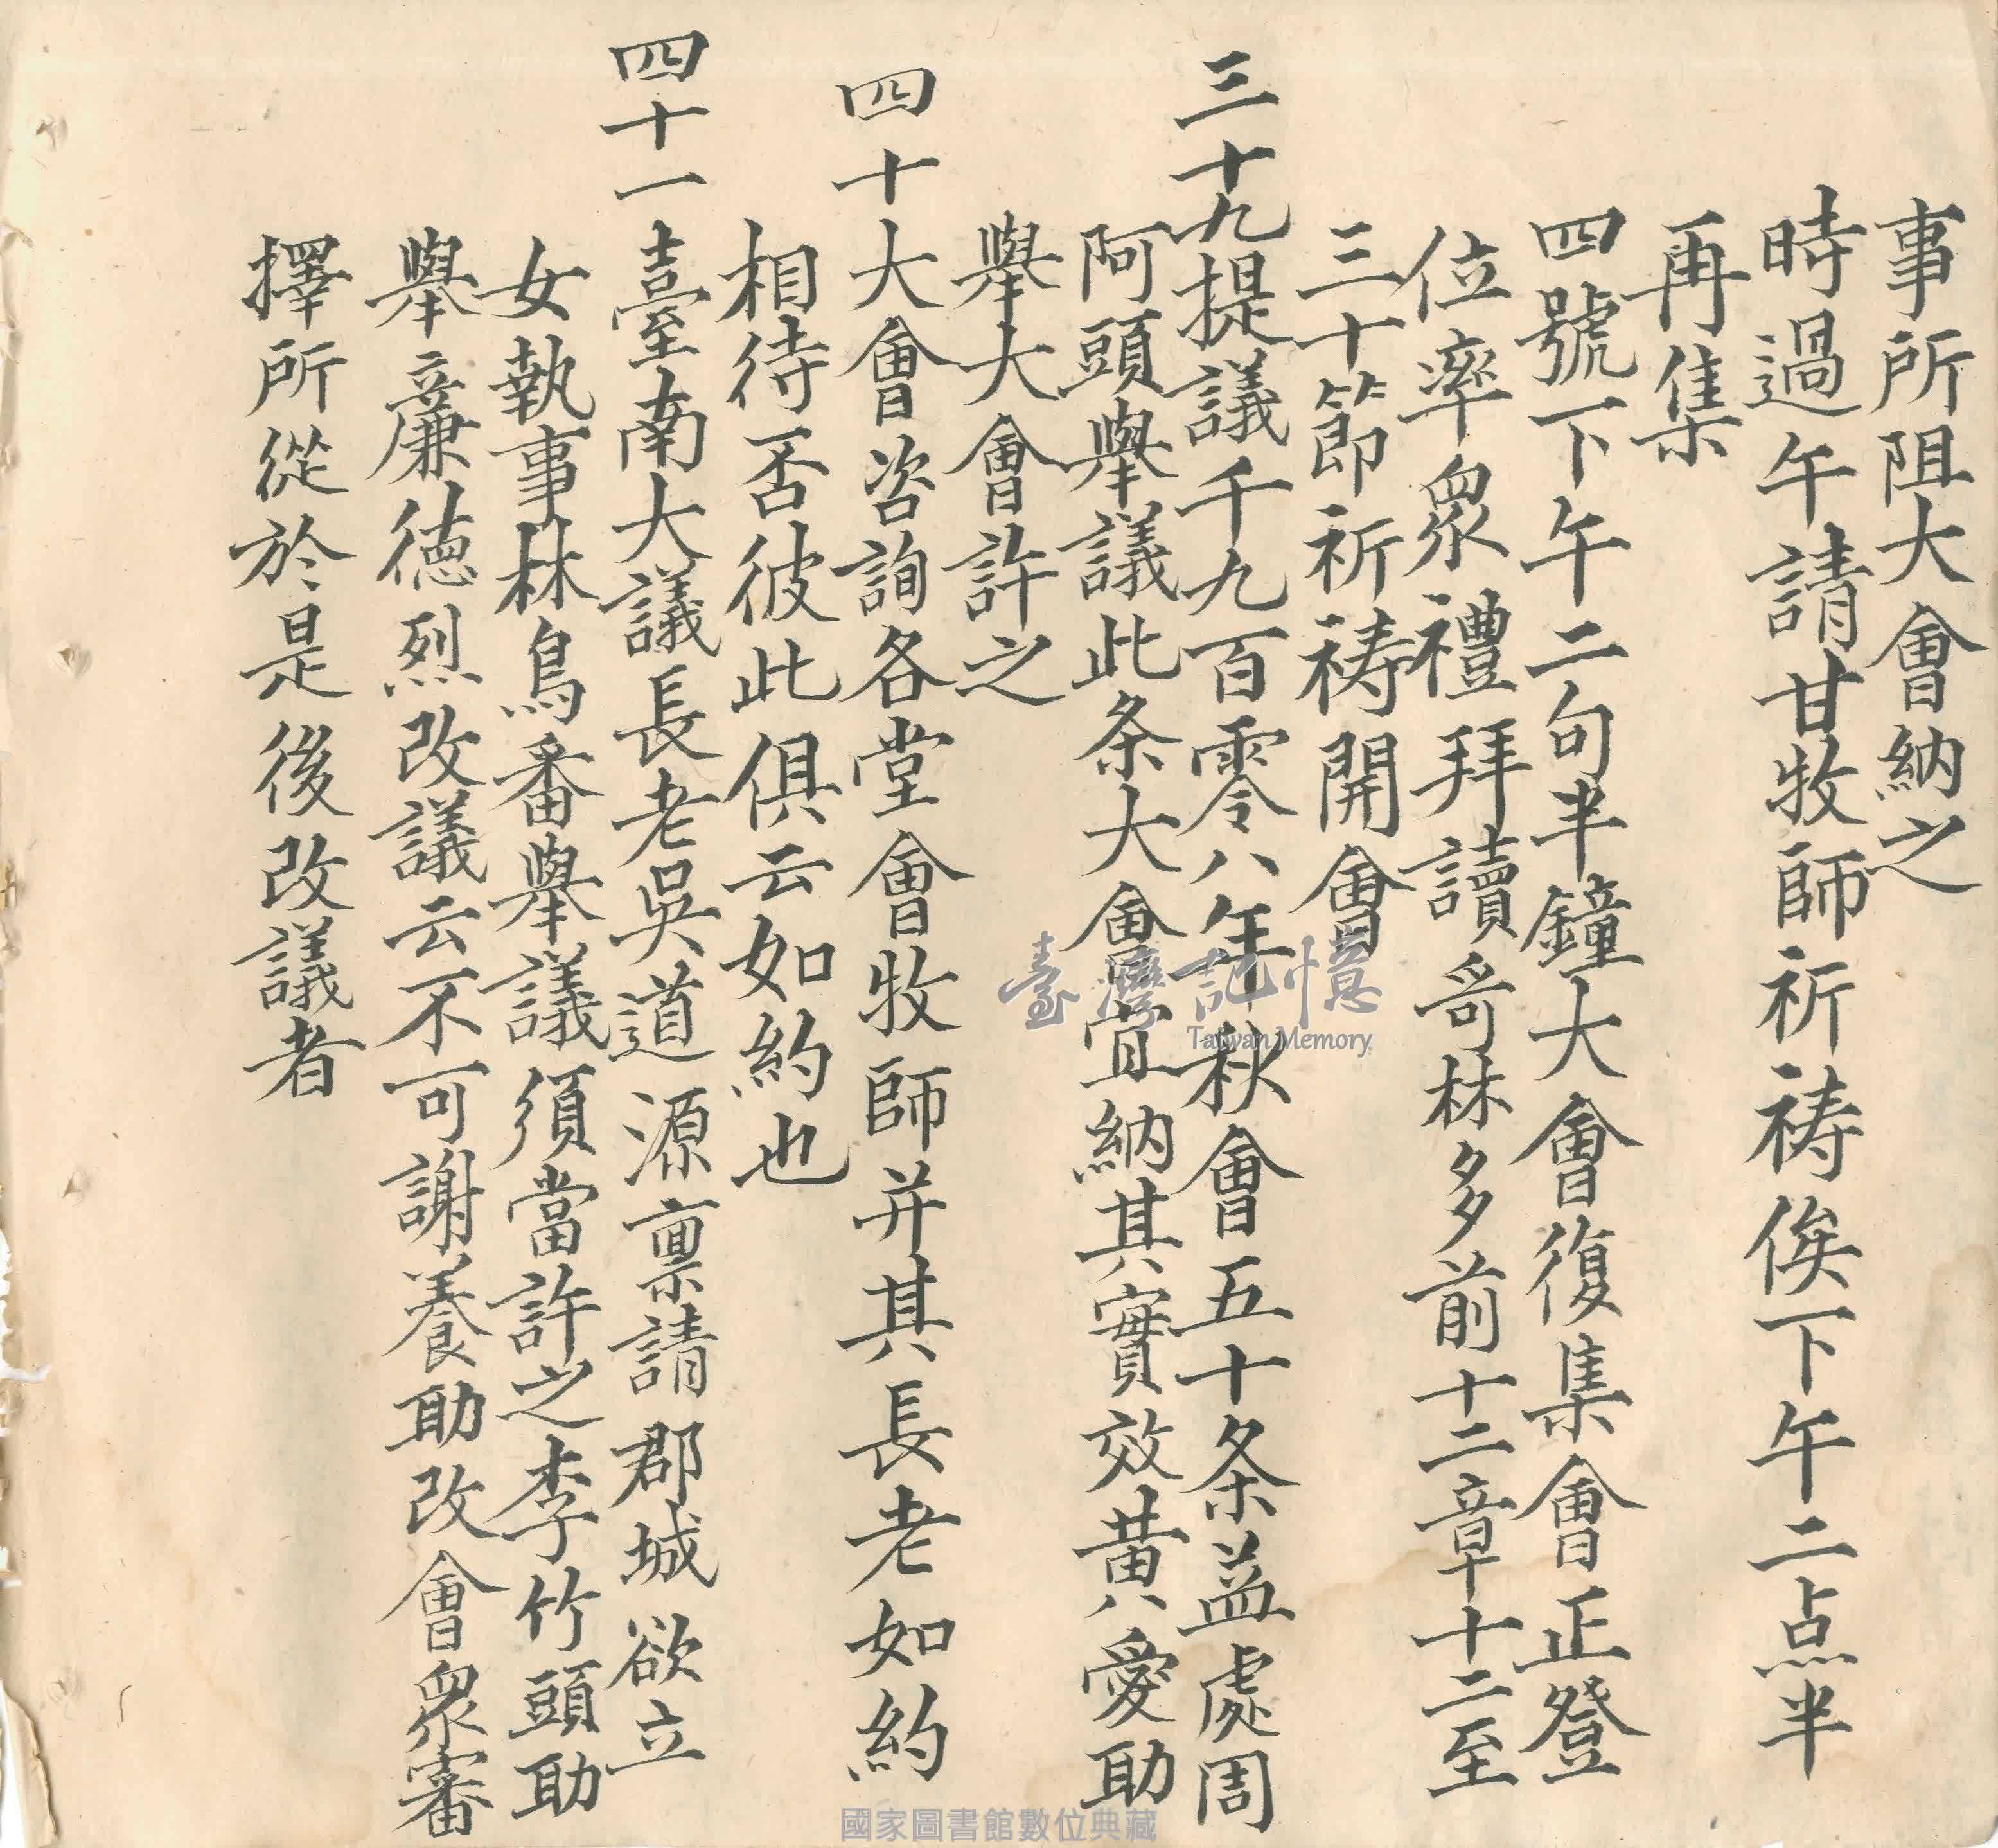 事所阻大會納之
時過午請甘牧師祈祷俟下午二点半
再集
四號下午二句半鐘大會復集會正登
位率眾禮拜讀哥林多前十二章十二至
三十節祈祷開會
三十九提議千九百零八年秋會五十条益處周
阿頭舉議此条大會宜納其實效黃愛助
舉大會許之
四十大會咨詢各堂會牧師并其長老如約
相待否彼此俱云如約也
四十一臺南大議長老吳道源禀請郡城欲立
女執事林鳥番舉議須當許之李竹頭助
舉廉德烈改議云不可謝養助改會眾審
擇所從於是後改議者
臺灣記憶
Taiwan Memory
國家圖書館數位典藏